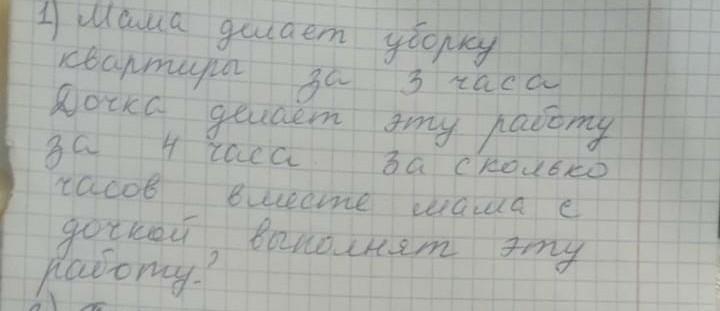 1) Мама делает уборку
квартиры за 3 часа
Дочка делает эту работу
за 4 часа. За сколько
часов вместе мама с
дочкой выполнят эту
работу?
2)